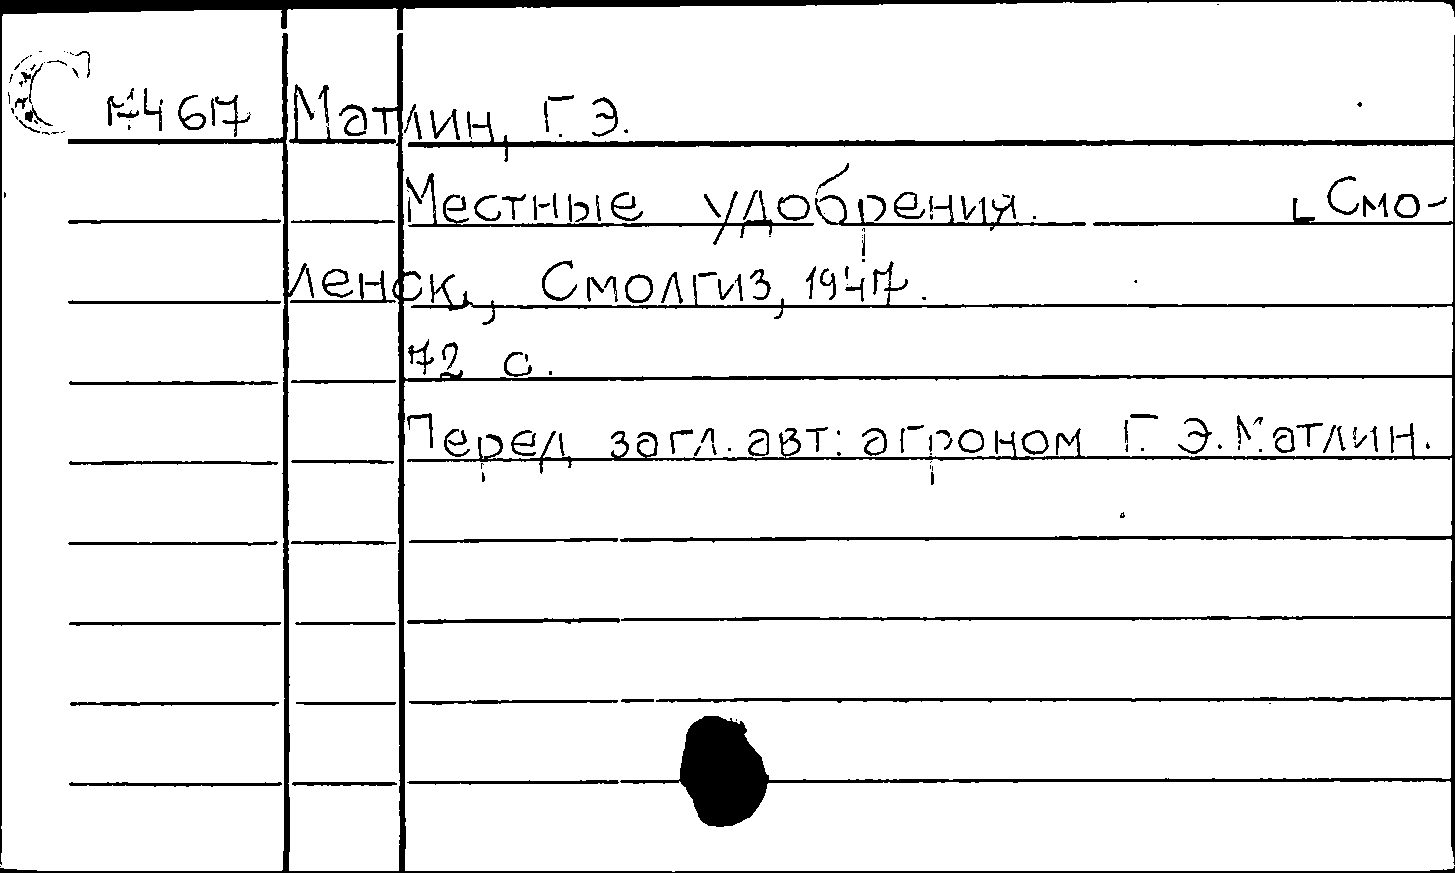 С 174617 Матлин, Г. Э.
Местные удобрения. [Смо-
ленск], Смолгиз, 1947.
72 с.
Перед загл. авт: агроном Г. Э. Матлин.